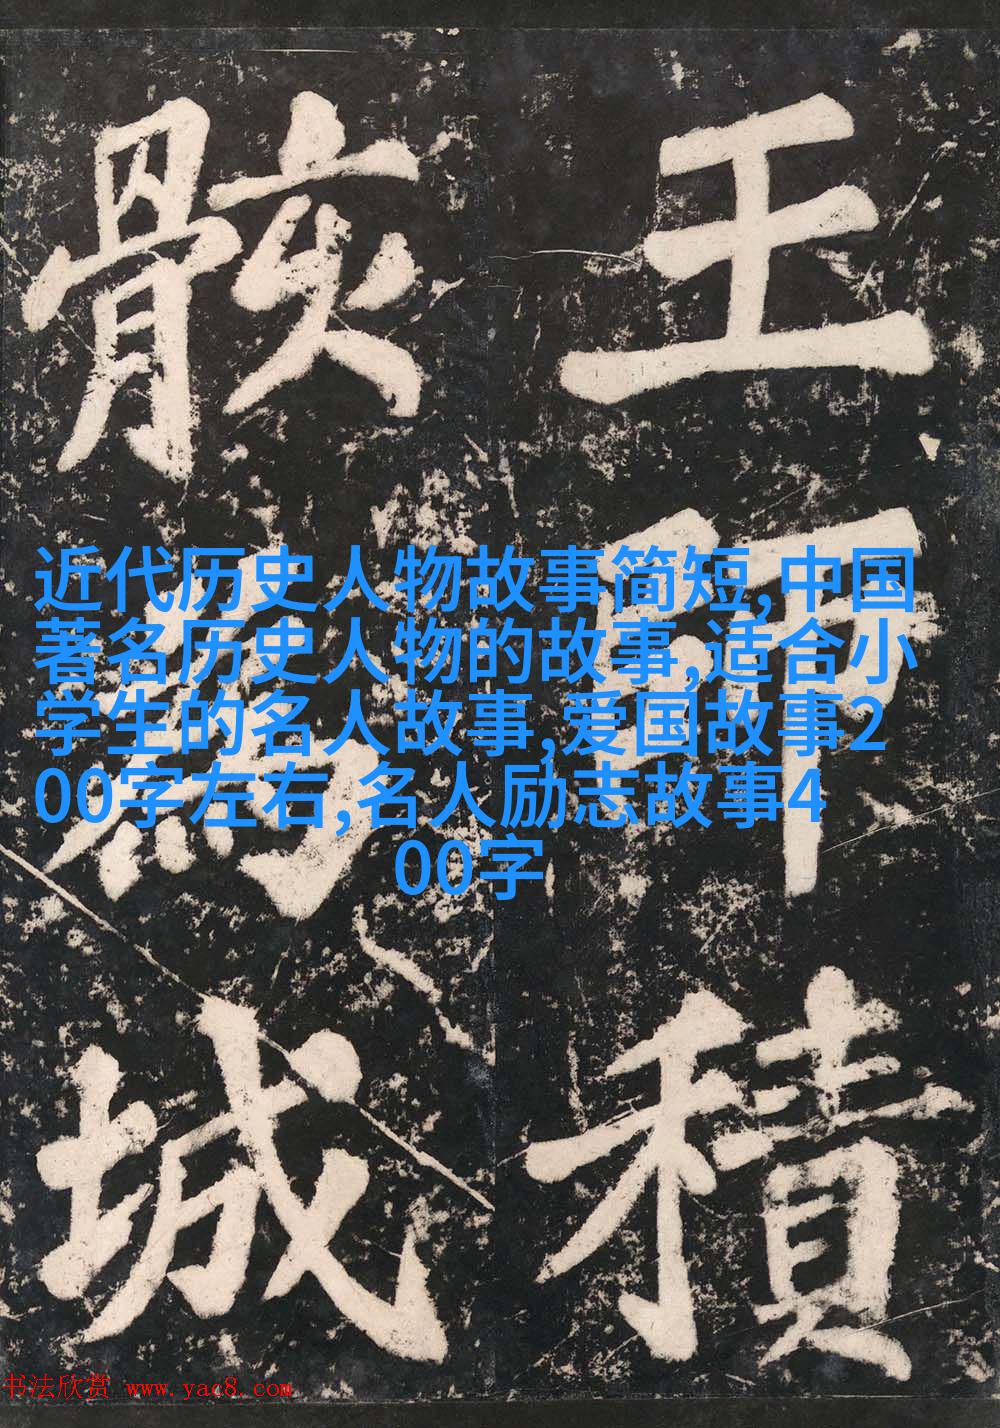 王師積
骸城
近代历史人物故事简短,中国
著名历史人物的故事,适合小
学生的名人故事,爱国故事2
00字左右,名人励志故事4
00字
书法欣赏 www.yac8.com